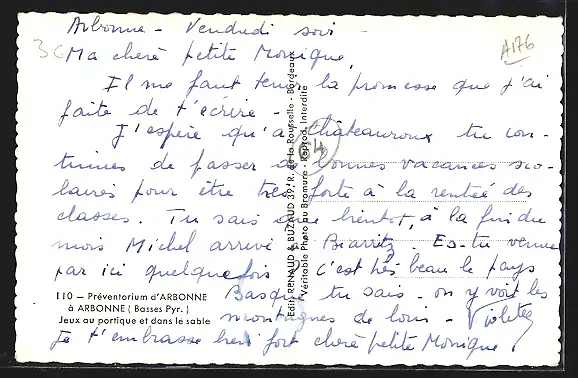 Arbonne - Vendredi soir -
3€
A176
Ma chère petite Monique,
Il me faut tenir la promesse que j'ai
faite de t'écrire -
J'espère qu'à Châteauroux tu con-
tinues de passer de bonnes vacances sco-
laires pour être très forte à la rentrée des
classes. Tu sais que bientôt, à la fin du
mois Michel arrive à Biarritz. Es-tu venue
par ici quelquefois ? c'est très beau le pays
Basque tu sais - on y voit les
montagnes de loin - Violette
Je t'embrasse bien fort chère petite Monique.
64
110 — Préventorium d'ARBONNE
à ARBONNE (Basses Pyr.)
Jeux au portique et dans le sable
Edit. RENAUD & BUZAUD 39, R. de la Rousselle - Bordeaux
Véritable Photo au Bromure - Reprod. Interdite